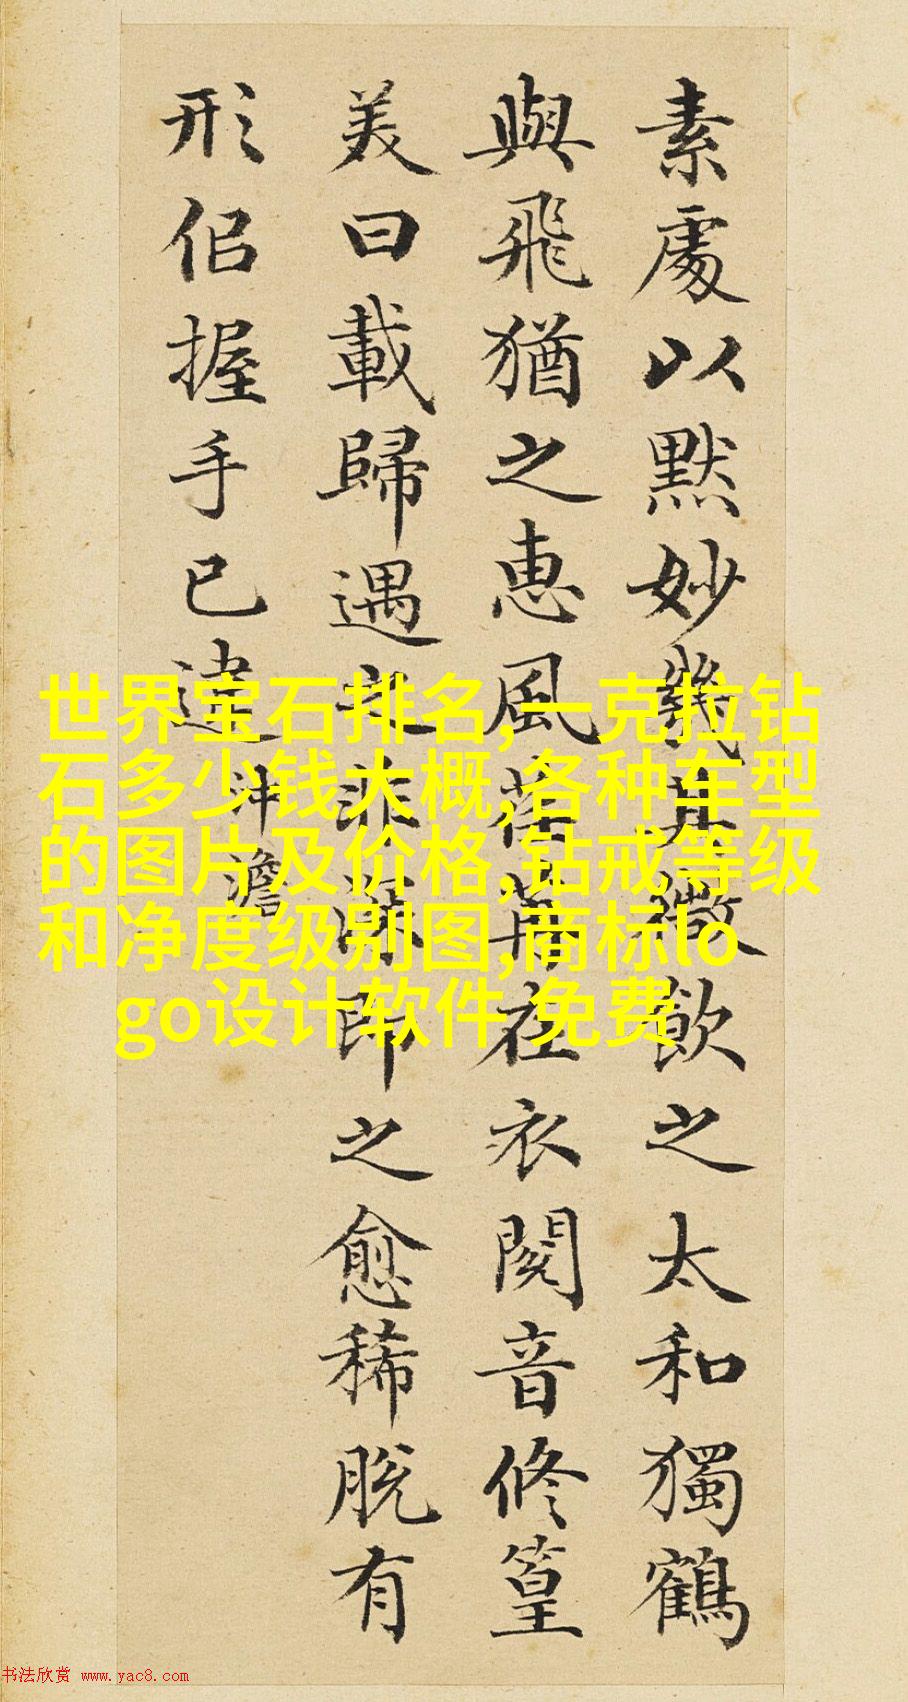 素處以默妙機其微飲之太和獨鶴
與飛猶之惠風荏苒在衣閱音修篁
美曰載歸遇之非深即之愈稀脫有
形佀握手已違
沖澹
世界宝石排名,一克拉钻
石多少钱大概,各种车型
的图片及价格,钻戒等级
和净度级别图,商标lo
go设计软件 免费
书法欣赏 www.yac8.com